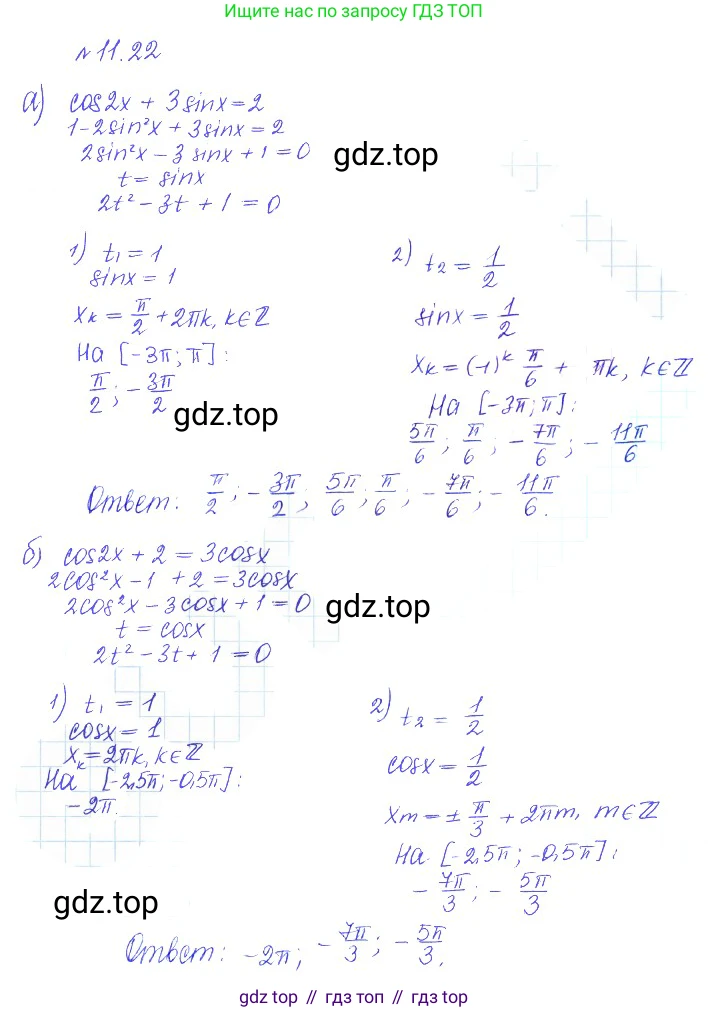 Ищите нас по запросу ГДЗ ТОП
№11.22
а) cos2x + 3sinx = 2
1 - 2sin²x + 3sinx = 2
2sin²x - 3sinx + 1 = 0
gdz.top
t = sinx
2t² - 3t + 1 = 0
1) t₁ = 1
sinx = 1
xₖ = π/2 + 2πk, k∈ℤ
На [-3π; π]:
π/2; -3π/2
gdz.top
2) t₂ = 1/2
sinx = 1/2
xₖ = (-1)ᵏ π/6 + πk, k∈ℤ
На [-3π; π]:
5π/6; π/6; -7π/6; -11π/6
Ответ: π/2; -3π/2; 5π/6; π/6; -7π/6; -11π/6.
б) cos2x + 2 = 3cosx
2cos²x - 1 + 2 = 3cosx
2cos²x - 3cosx + 1 = 0
gdz.top
t = cosx
2t² - 3t + 1 = 0
1) t₁ = 1
cosx = 1
xₖ = 2πk, k∈ℤ
На [-2,5π; -0,5π]:
-2π.
2) t₂ = 1/2
cosx = 1/2
xm = ± π/3 + 2πm, m∈ℤ
На [-2,5π; -0,5π]:
-7π/3; -5π/3
gdz.top
Ответ: -2π; -7π/3; -5π/3.
gdz top // гдз топ // gdz.top // гдз.топ